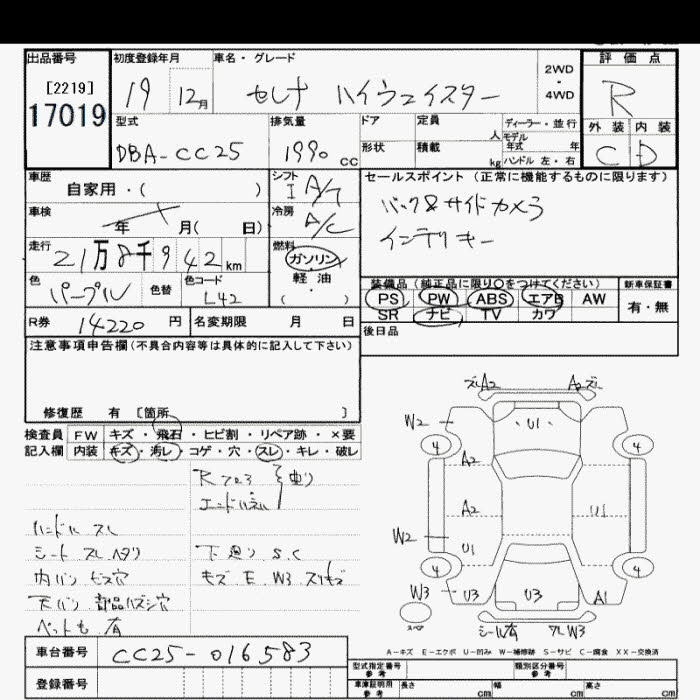 出品番号 初度登録年月 車名・グレード 評価点
[2219] 2WD
17019 19 12月 セレナ ハイウェイスター ・ R
4WD
型式 排気量 ドア 定員 ディーラー・並行 外装 内装
人 モデル年式 年
DBA-CC25 1990cc 形状 積載 kg ハンドル 左・右 C D
車歴 シフト セールスポイント (正常に機能するものに限ります)
自家用・( ) I A/T
車検 冷房 バック&サイドカメラ
年 月( 日) A/C インテリキー
走行 燃料
21万8千942km ガソリン
色 色替 色コード 軽油 装備品 (純正品に限り○をつけてください) 新車保証書
パープル L42 ( ・ ) PS PW ABS エアB AW 有・無
R券 14220円 名変期限 月 日 SR ナビ TV カワ
後日品
注意事項申告欄(不具合内容等は具体的に記入して下さい)
修復歴 有 [箇所 ]
検査員 FW キズ・飛石・ヒビ割・リペア跡・×要
記入欄 内装 キズ・汚レ・コゲ・穴・スレ・キレ・破レ
Rフロア 曲り
エンドパネル
ハンドル スレ
シート スレ ヘタリ 下廻り S.C
内バリ ビス穴 キズ E W3 スリキズ
天バリ 部品ハズシ穴
ペット毛 有
スレA2 A2スレ
W2 U1
4 4
A2
A2 U1
W2
U1
4 4
W3 U3 U3 A1
スペア
シール有 ワレW3
A-キズ E-エクボ U-凹み W-補修跡 S-サビ C-腐食 XX-交換済
車台番号 CC25-016583
登録番号
型式指定番号 参考 類別区分番号 参考
車庫証明用 参考 長さ cm 幅 cm 高さ cm